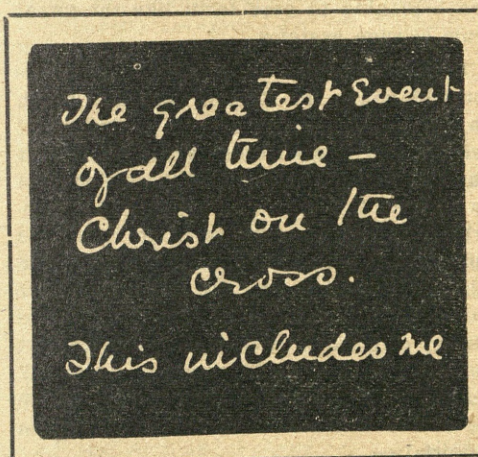 The greatest Event
of all time –
Christ on the
cross.
This includes me